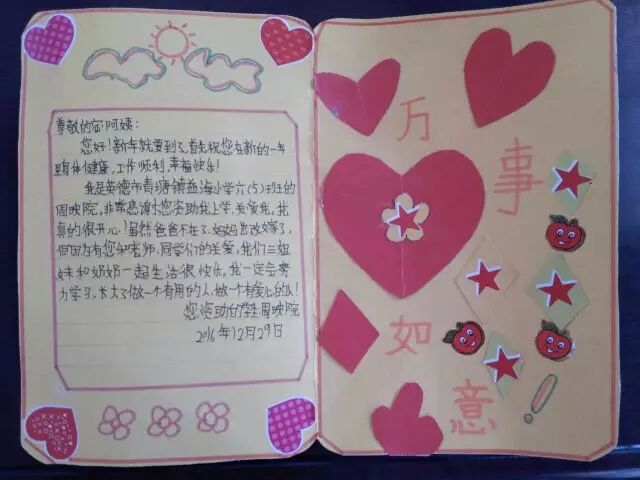 尊敬的宓阿姨：
您好！新年就要到了，首先祝您在新的一年
里身体健康，工作顺利，幸福快乐！
我是英德市青塘镇鱼海小学六（5）班的
周映院。非常感谢您资助我上学，关爱我。我
真的很开心！虽然爸爸不在了，妈妈也改嫁了，
但因为有您和老师、同学们的关爱，我们三姐
妹和奶奶一起生活很快乐，我一定会努
力学习，长大了做一个有用的人，做一个有爱心的人！
您资助的学生：周映院
2016年12月29日
万
事
如
意
！